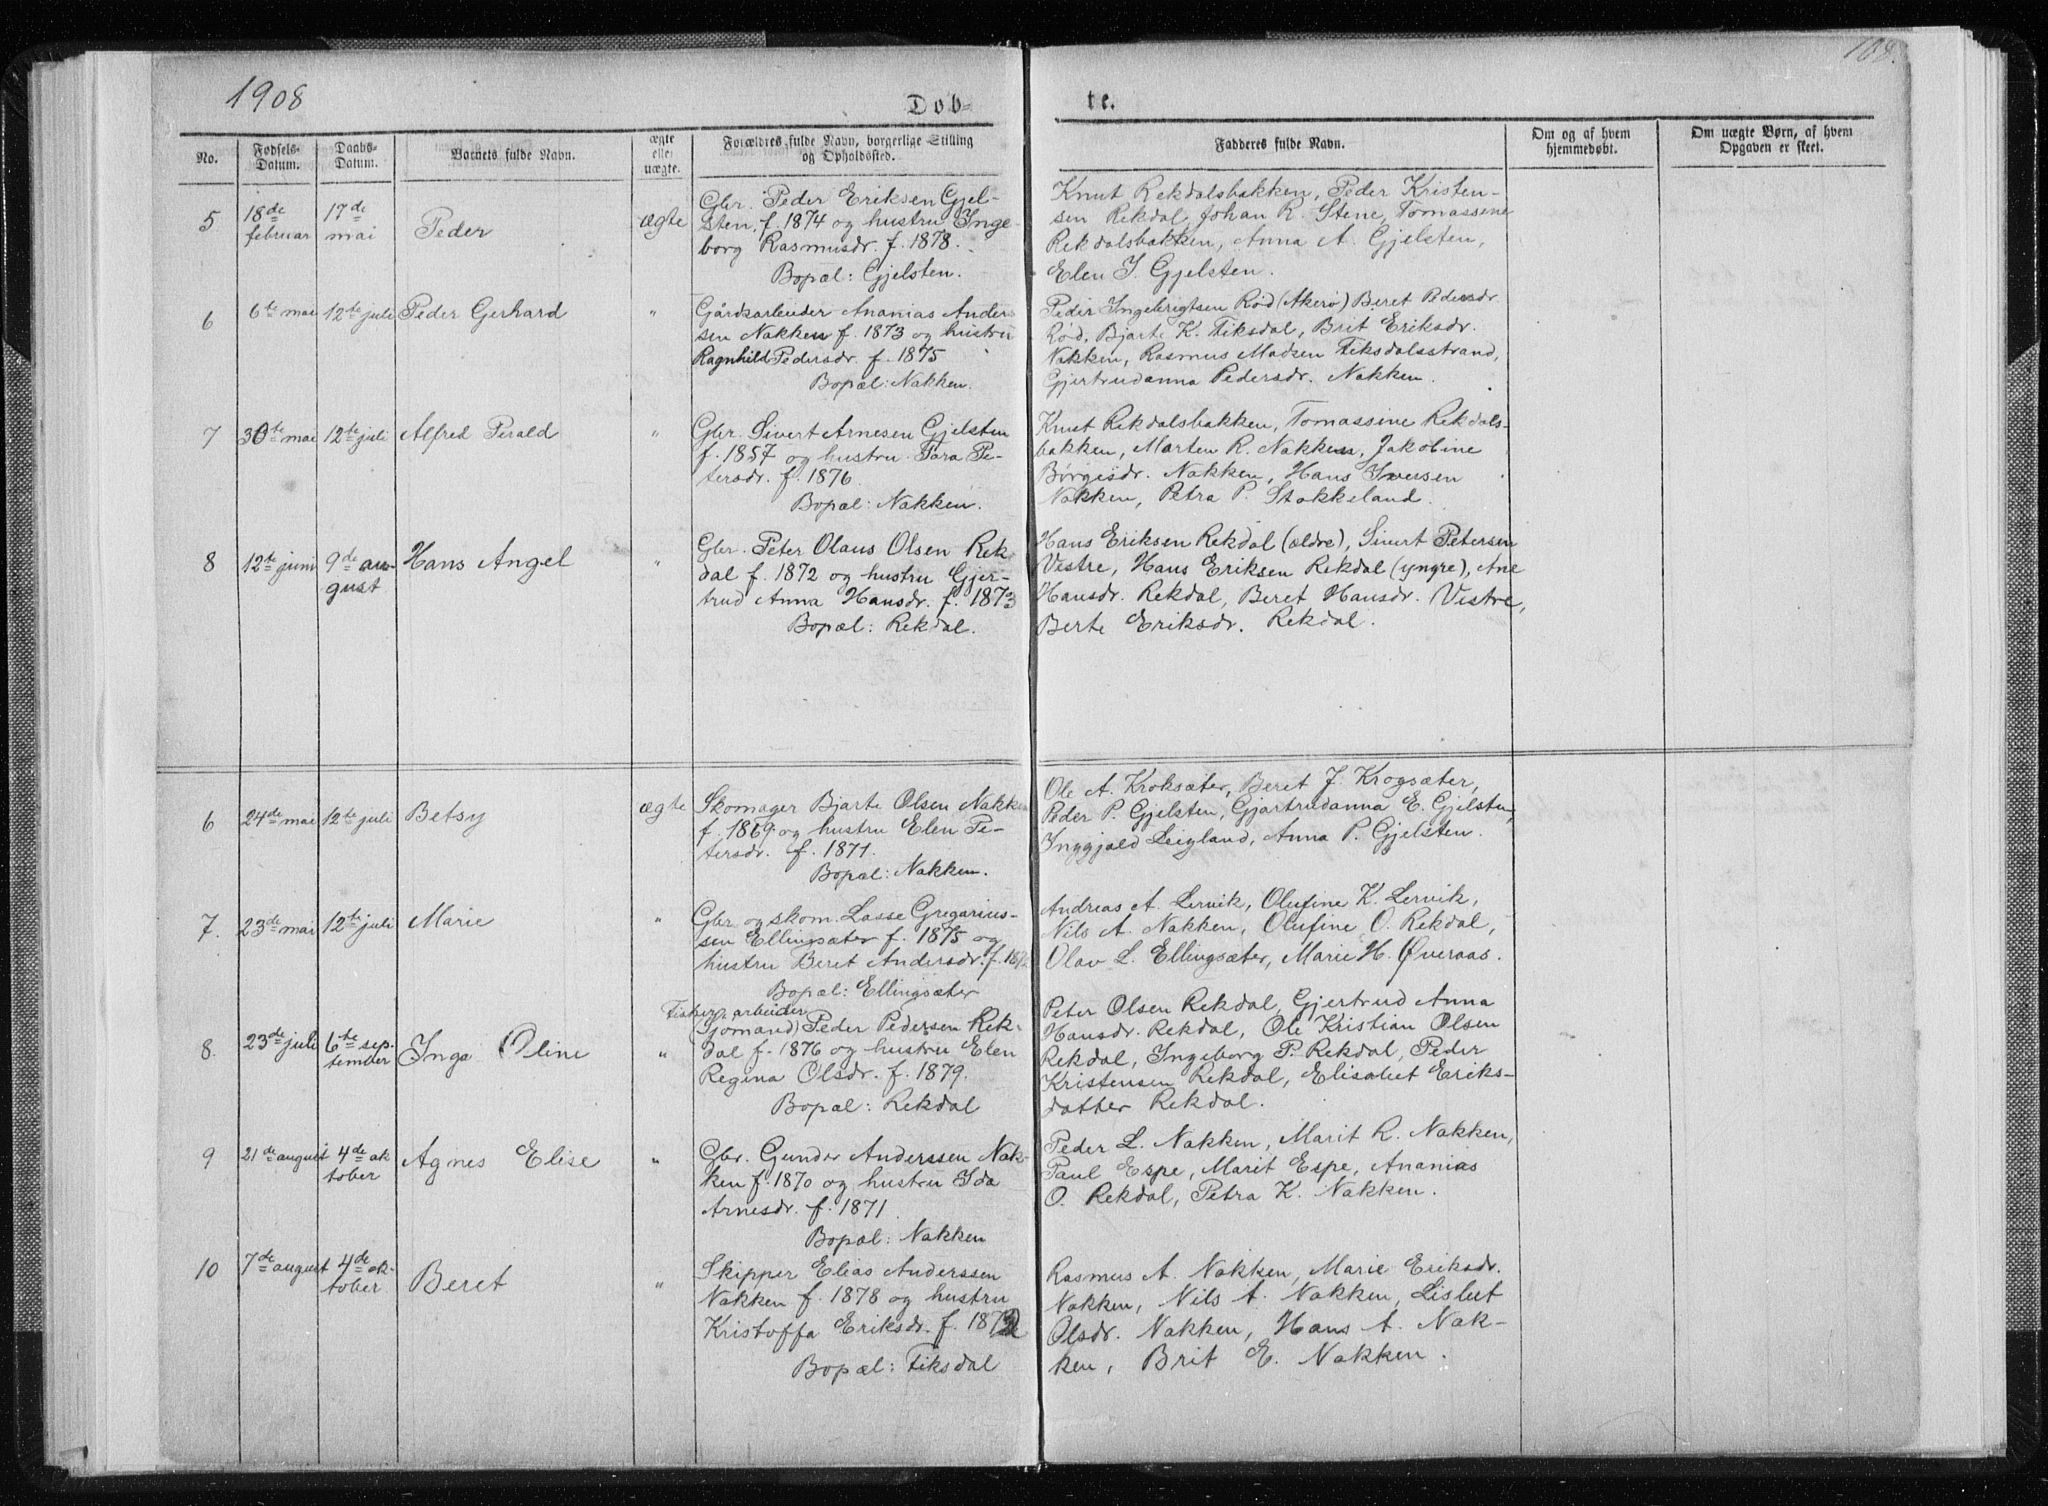 1908
108.
Døb-
te.
No.
Fødsels-
Datum.
Daabs-
Datum.
Barnets fulde Navn.
ægte
eller
uægte.
Forældres fulde Navn, borgerlige Stilling
og Opholdssted.
Fadderes fulde Navn.
Om og af hvem
hjemmedøbt.
Om uægte Børn, af hvem
Opgaven er skeet.
5
18de
februar
17de
mai
Peder
ægte
Gbr. Peder Eriksen Gjel-
sten, f. 1874 og hustru Inge-
borg Rasmusdr. f. 1878.
Bopæl: Gjelsten.
Knut Rekdalsbakken, Peder Kristen-
sen Rekdal, Johan R. Stene, Tomassene
Rekdalsbakken, Anna A. Gjelsten,
Elen I. Gjelsten.
6
6te mai
12te juli
Peder Gerhard
"
Gårdsarbeider Ananias Ander-
sen Nakken f. 1873 og hustru
Ragnhild Pedersdr. f. 1875
Bopæl: Nakken.
Peder Ingebrigtsen Rød (Akerø) Beret Pedersdr.
Rød, Bjarte K. Fiksdal, Brit Eriksdr.
Nakken, Rasmus Madsen Fiksdalsstrand,
Gjertrudanna Pedersdr. Nakken.
7
30te mai
12te juli
Alfred Perald
"
Gbr. Sivert Arnesen Gjelsten
f. 1857 og hustru Sara Pe-
tersdr. f. 1876.
Bopæl: Nakken.
Knut Rekdalsbakken, Tomassine Rekdals-
bakken, Marten R. Nakken, Jakobine
Børgisdr. Nakken, Hans Iversen
Nakken, Petra P. Stokkeland.
8
12te juni
9de au-
gust
Hans Angel
"
Gbr. Peter Olaus Olsen Rek
dal f. 1872 og hustru Gjer-
trud Anna Hansdr. f. 1873
Bopæl: Rekdal.
Hans Eriksen Rekdal (ældre), Sivert Petersen
Vestre, Hans Eriksen Rekdal (yngre), Ane
Hansdr. Rekdal, Beret Hansdr. Vestre,
Berte Eriksdr. Rekdal.
6
24de mai
12te juli
Betsy
ægte
Skomager Bjarte Olsen Nakken
f. 1869 og hustru Elen Pe-
tersdr. f. 1871.
Bopæl: Nakken.
Ole A. Kroksæter, Beret J. Krogsæter,
Peder P. Gjelsten, Gjørtrudanna E. Gjelsten,
Inggjald Leigland, Anna P. Gjelsten.
7.
23de mai
12te juli
Marie
"
Gbr. og skom. Lasse Gregarius-
sen Ellingsæter f. 1875 og
hustru Beret Andersdr. f.
Bopæl: Ellingsæter
Andreas A. Lervik, Olufine K. Lervik,
Nils A. Nakken, Olufine O. Rekdal,
Olav L. Ellingsæter, Marie H. Øveraas.
8.
23de juli
6te sep-
tember
Inga Oline
"
Fisker, arbeider
(jomand) Peder Pedersen Rek-
dal f. 1876 og hustru Elen
Regina Olsdr. f. 1879.
Bopæl: Rekdal
Peter Olsen Rekdal, Gjertrud Anna
Hansdr. Rekdal, Ole Kristian Olsen
Rekdal, Ingeborg P. Rekdal, Peder
Kristensen Rekdal, Elisabet Eriks-
datter Rekdal.
9
21de august
4de ok
tober
Agnes Elise
"
Gbr. Gunder Anderssen Nak-
ken f. 1870 og hustru Ida
Arnesdr. f. 1871.
Bopæl: Nakken
Peder L. Nakken, Marit R. Nakken,
Paul Espe, Marit Espe, Ananias
O. Rekdal, Petra K. Nakken.
10
7de august
4de ok-
tober
Beret
"
Skipper Elias Anderssen
Nakken f. 1878 og hustru
Kristoffa Eriksdr. f.
Bopæl: Fiksdal
Rasmus A. Nakken, Marie Eriksdr.
Nakken, Nils A. Nakken, Lisbet
Olsdr. Nakken, Hans A. Nak-
ken, Brit E. Nakken.